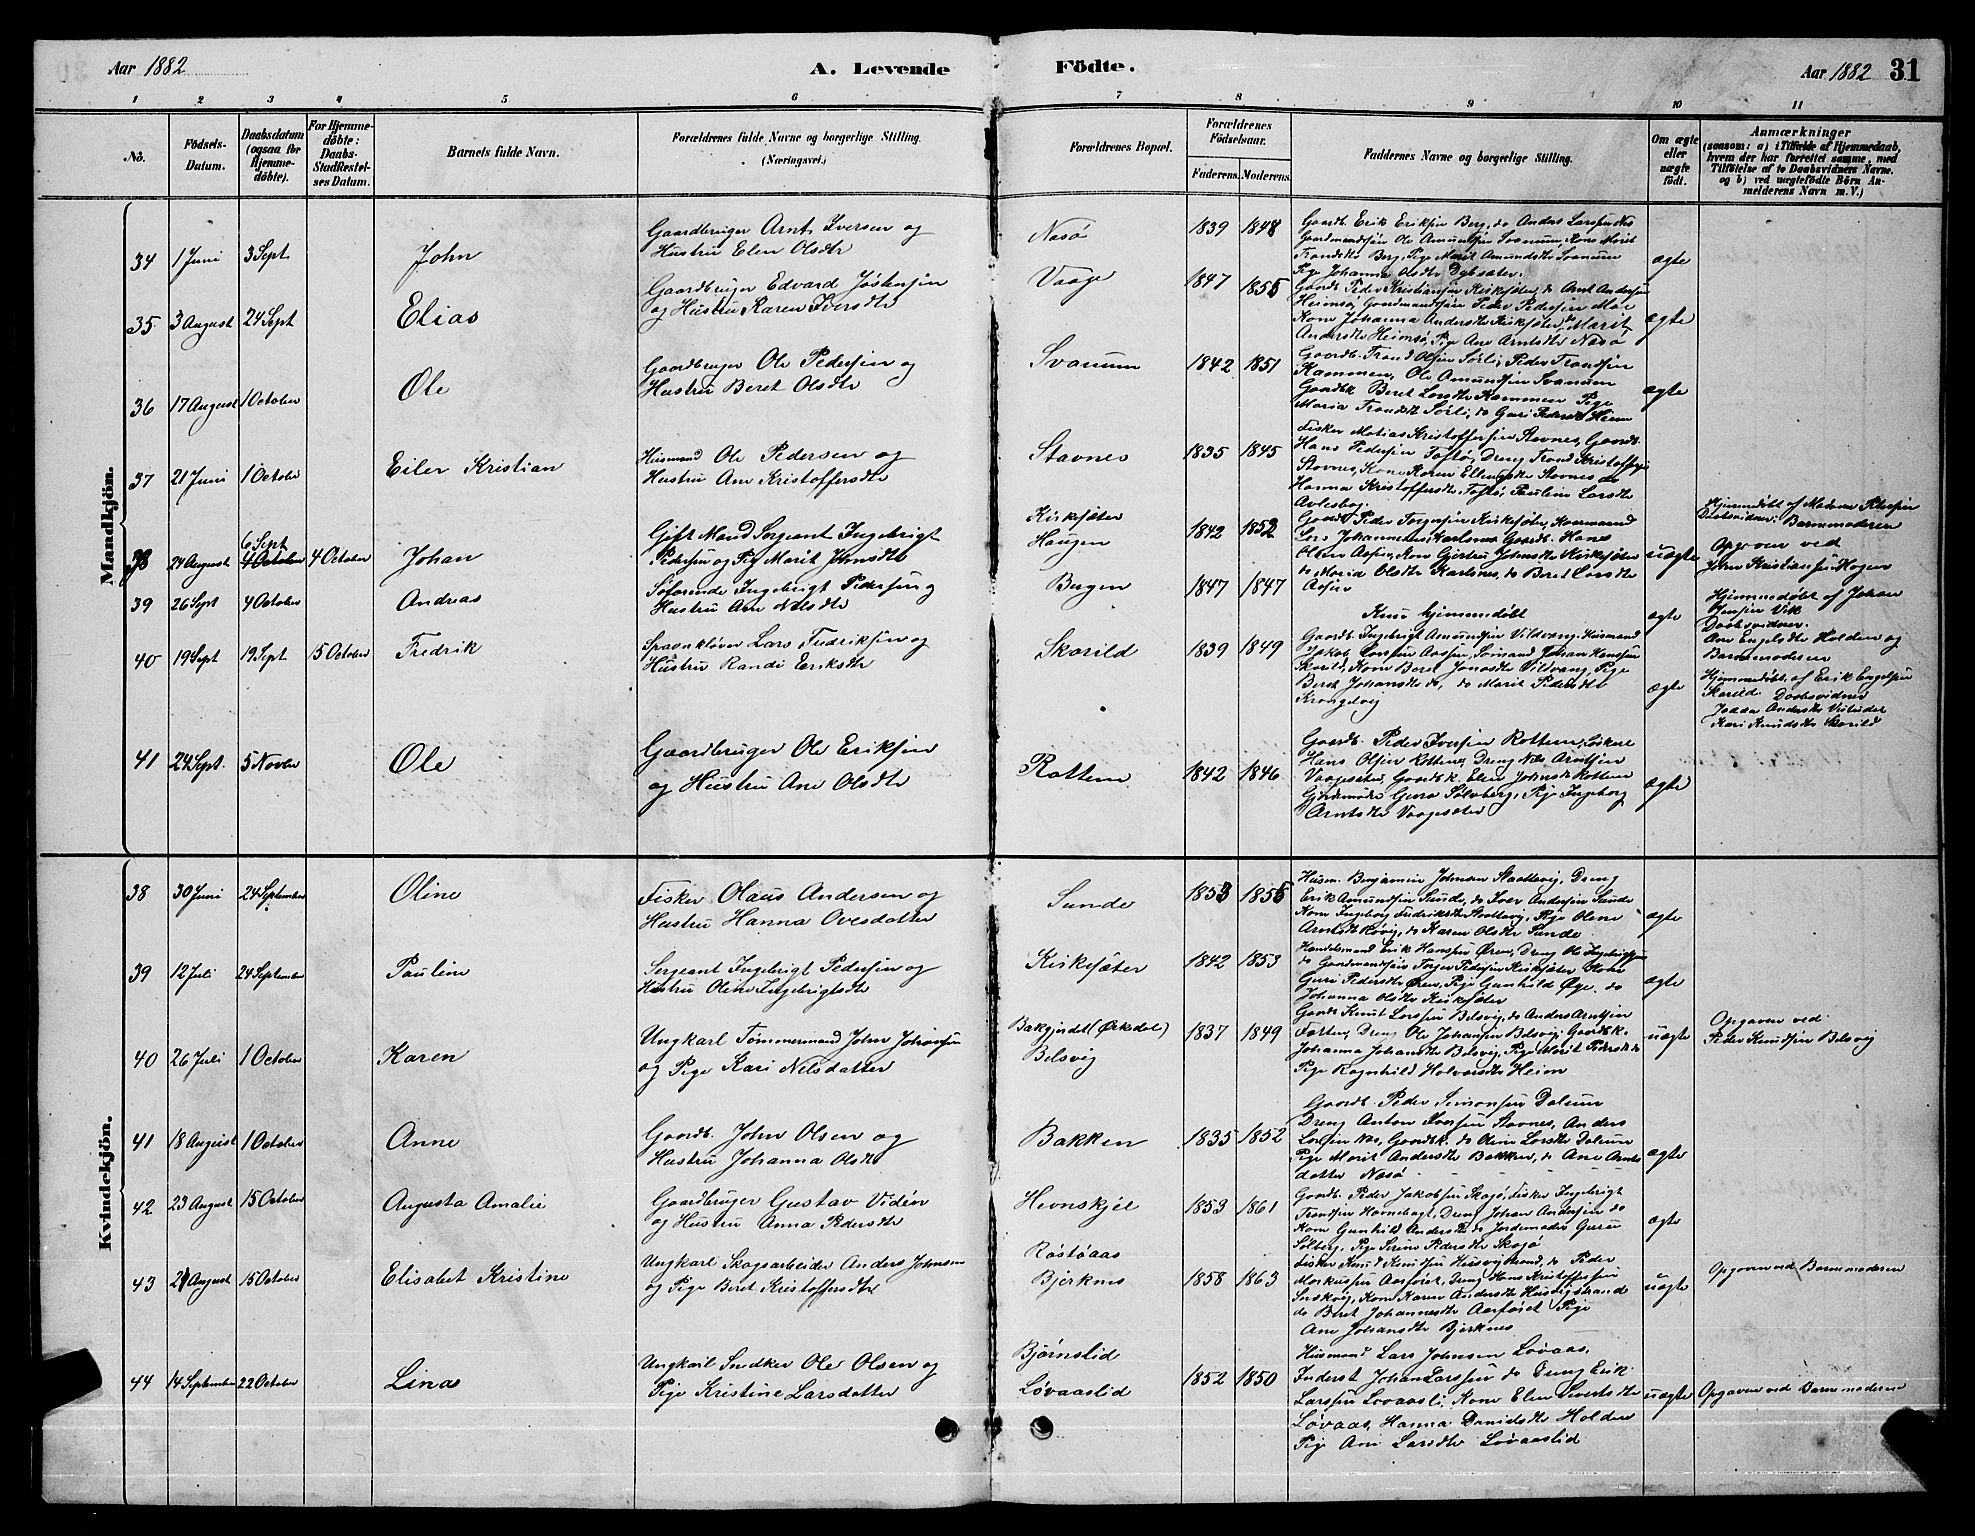 Aar 1882
A. Levende
Födte.
Aar 1882 31
1 2 3 4 5 6 7 8 9 10 11
No.
Födsels-Datum.
Daabsdatum (ogsaa for Hjemmedöbte).
For Hjemmedöbte: Daabs-Stadfæstelses Datum.
Barnets fulde Navn.
Forældrenes fulde Navne og borgerlige Stilling.
(Næringsvei.)
Forældrenes Bopæl.
Forældrenes Födselsaar.
Faderens. Moderens.
Faddernes Navne og borgerlige Stilling.
Om ægte eller uægte födt.
Anmærkninger
(saasom: a) i Tilfælde af Hjemmedaab, hvem der har forrettet samme, med Tilföielse af to Daabsvidners Navne. og b) ved uægtefödte Börn Anmelderens Navn m. V.)
Mandkjön.
34 1 Juni 3 Sept John
Gaardbruger Arnt Iversen og
Hustru Elen Olsdtr
Nasö 1839 1848
Gaardb. Erik Eriksen Berg, do Anders Larssen Næs
Gaardmandssön Ole Amundsen Svanum, Kone Marit
Trondsdtr Berg, Pige Marit Amundsdtr Svanum
Pige Johanna Olsdtr Dybsæter.
ægte
35 3 August 24 Sept Elias
Gaardbruger Edvard Jöstensen
og Hustru Karen Iversdtr
Vaage 1847 1855
Gaardb. Peder Kristiansen Kirksæter, do Arnt Andersen
Heimsö, Gaardmandssön Peder Pedersen Moe
Kone Johanna Andersdtr Kirksæter, do Marit
Andersdtr Heimsö, Pige Ane Arntsdtr Nasö
ægte
36 17 August 1 October Ole
Gaardbruger Ole Pedersen og
Hustru Beret Olsdtr
Svanum 1842 1851
Gaardb. Trond Olsen Sörli, Peder Trondsen
Kammen, Ole Amundsen Svanum
Gaardbk Beret Larsdtr Kammen Pige
Maria Trondsdtr Sörli, do Guri Pedersdtr Heim
ægte
37 21 Juni 1 October Eiler Kristian
Husmand Ole Pedersen og
Hustru Ane Kristoffersdtr
Stavnes 1835 1845
Fisker Matias Kristoffersen Stavnes, Gaardb.
Hans Pedersen Toftö, Dreng Trond Kristoffersen
Stavnes, Kone Karen Ellingsdtr Stavnes do
Hanna Kristoffersdtr Toftö, Pauline Larsdtr
38 24 August 6 Sept 4 October 4 October Johan
Gift Mand Sergeant Ingebrigt
Pedersen og Pig Marit Johnsdtr
Kirksæter
Haugen
1842 1852
Gaardb Peder Torgersen Kirksæter, Kaarmand
Lars Johannesen Karlsnes Gaardb. Hans
Olsen Aasen, Kone Gjertru Johnsdtr Kirksæter
do Maria Olsdtr Karlsnes, do Beret Larsdtr
Aasen
uægte
Barnmoderen
Opgiven ved
John Kristiansen Hogen
39 26 Sept 4 October Andreas
Söfarende Ingebrigt Pedersen og
Hustru Ane Nilsdtr
Bergen 1847 1847
Kun hjemmedöbt
ægte
Hjemmedöbt af Johan
Jensen Vik
Daabsvidner.
Ane Engelsdtr Holden og
Barnemoderen
40 19 Sept 19 Sept 15 October Fredrik
Lars Fredriksen og
Hustru Randi Eriksdtr
Skarild 1839 1849
Gaardb. Ingebrigt Amundsen Vildvang, Husmand
Jakob Larssen Aasen, Sömand Johan Hanssen
Skarild, Kone Beret Jonasdtr Vildvang, Pige
Beret Johansdtr do, do Marit Pedersdtr
Krongelvig
ægte
Hjemmedöbt af Erik Engelsen
Skarild. Daabsvidner
Kari Knudsdtr Skarild
41 24 Sept. 5 Novbr Ole
Gaardbruger Ole Eriksen
og Hustru Ane Olsdtr
Rottem 1842 1846
Gaardb. Peder Iversen Rottem,
Hans Olsen Rottem, Dreng Nils Arntsen
Vaagesæter, Gaardbk. Elen Johnsdtr Rottem
Gjordemoder Guru Sölvberg, Pige Ingeborg
Arntsdtr Vaagesæter
ægte
Kvindekjön.
38 30 Juni 24 September Oline
Fisker Olaus Andersen og
Hustru Hanna Ovesdatter
Sunde 1853 1855
Husm. Benjamin Johnsen Slaattevig, Dreng
Erik Amundsen Sunde, do Iver Andersen Sunde
Kone Ingeborg Fredriksdtr Slottevig, Pige Olene
Arntsdtr Rövig, do Karen Olsdtr Sunde
ægte
39 12 Juli 24 September Pauline
Sergeant Ingebrigt Pedersen og
Hustru Oline Ingebrigtsdtr
Kirksæter 1842 1853
Handelsmand Erik Hanssen Ören, Dreng Ole Ingebrigtsen
do Gaardmandssön Torger Pedersen Kirksæter Kone
Guri Pedersdtr Ören, Pige Gunhild Öye do
Johanna Olsdtr Kirksæter
ægte
40 26 Juli 1 October Karen
Ungkarl Tömmermand John Johnsen
og Pige Kari Nilsdatter
(Örkdal)
Belsvig
1837 1849
Gaardb Knut Larssen Belsvig, do Anders Arntsen
Dreng Ole Johansen Belsvig, Gaardbk.
Johanna Johansdtr Belsvig, Pige Marit Pedersdtr do
Pige Ragnhild Halvorsdtr Heim
uægte
Opgiven ved
Peder Knudsen Belsvig
41 18 August 1 October Anne
Gaardb. John Olsen og
Hustru Johanna Olsdtr
Bakken 1835 1852
Gaardb. Peder Simonsen Dalum
Dreng Anton Iversen Stavnes, Anders
Larsen Næs, Gaardbk. do Oline Larsdtr Dalum
Pige Marit Andersdtr Bakken, do Ane Arnts
datter Nasö
ægte
42 23 August 15 October Augusta Amalie
Gaardbruger Gustav Vidön
og Hustru Anna Pedersdtr
Hevnskjel 1853 1861
Gaardb. Peder Jakobsen Skagö, Fisker Ingebrigt
Trondsen Havnebugt, Dreng Johan Andersen do
Kone Gunhild Andersdtr do Jordemoder Guru
Sölberg, Pige Serine Pedersdtr Skagö
ægte
43 21 August 15 October Elisabet Kristine
Ungkarl Skogsarbeider Anders Johnsen
og Pige Beret Kristoffersdtr
Röstöaas
Bjerknes
1858 1863
Fisker Knud Knudsen Husvigstrand, do Peder
Markussen Aarföiet, Dreng Hans Kristoffersen
Snekvig, Kone Karen Andersdtr Husvigstrand
do Beret Johannesdtr Aarföiet Pige
Ane Johansdtr Bjerknes
uægte
Opgiven ved Barnemoderen
44 14 September 22 October Lina
Ungkarl Snedker Ole Olsen og
Pige Kristine Larsdatter
Björnslid
Lövaaslid
1852 1850
Husmand Lars Johnsen Lövaas,
Inderst Johan Larssen do Dreng Erik
Larssen Lovaasli, Kone Elen Sivertsdtr
Lövaas, Hanna Danielsdtr Holden
Pige Ane Larsdtr Lövaaslid
uægte
Opgiven ved Barnemoderen